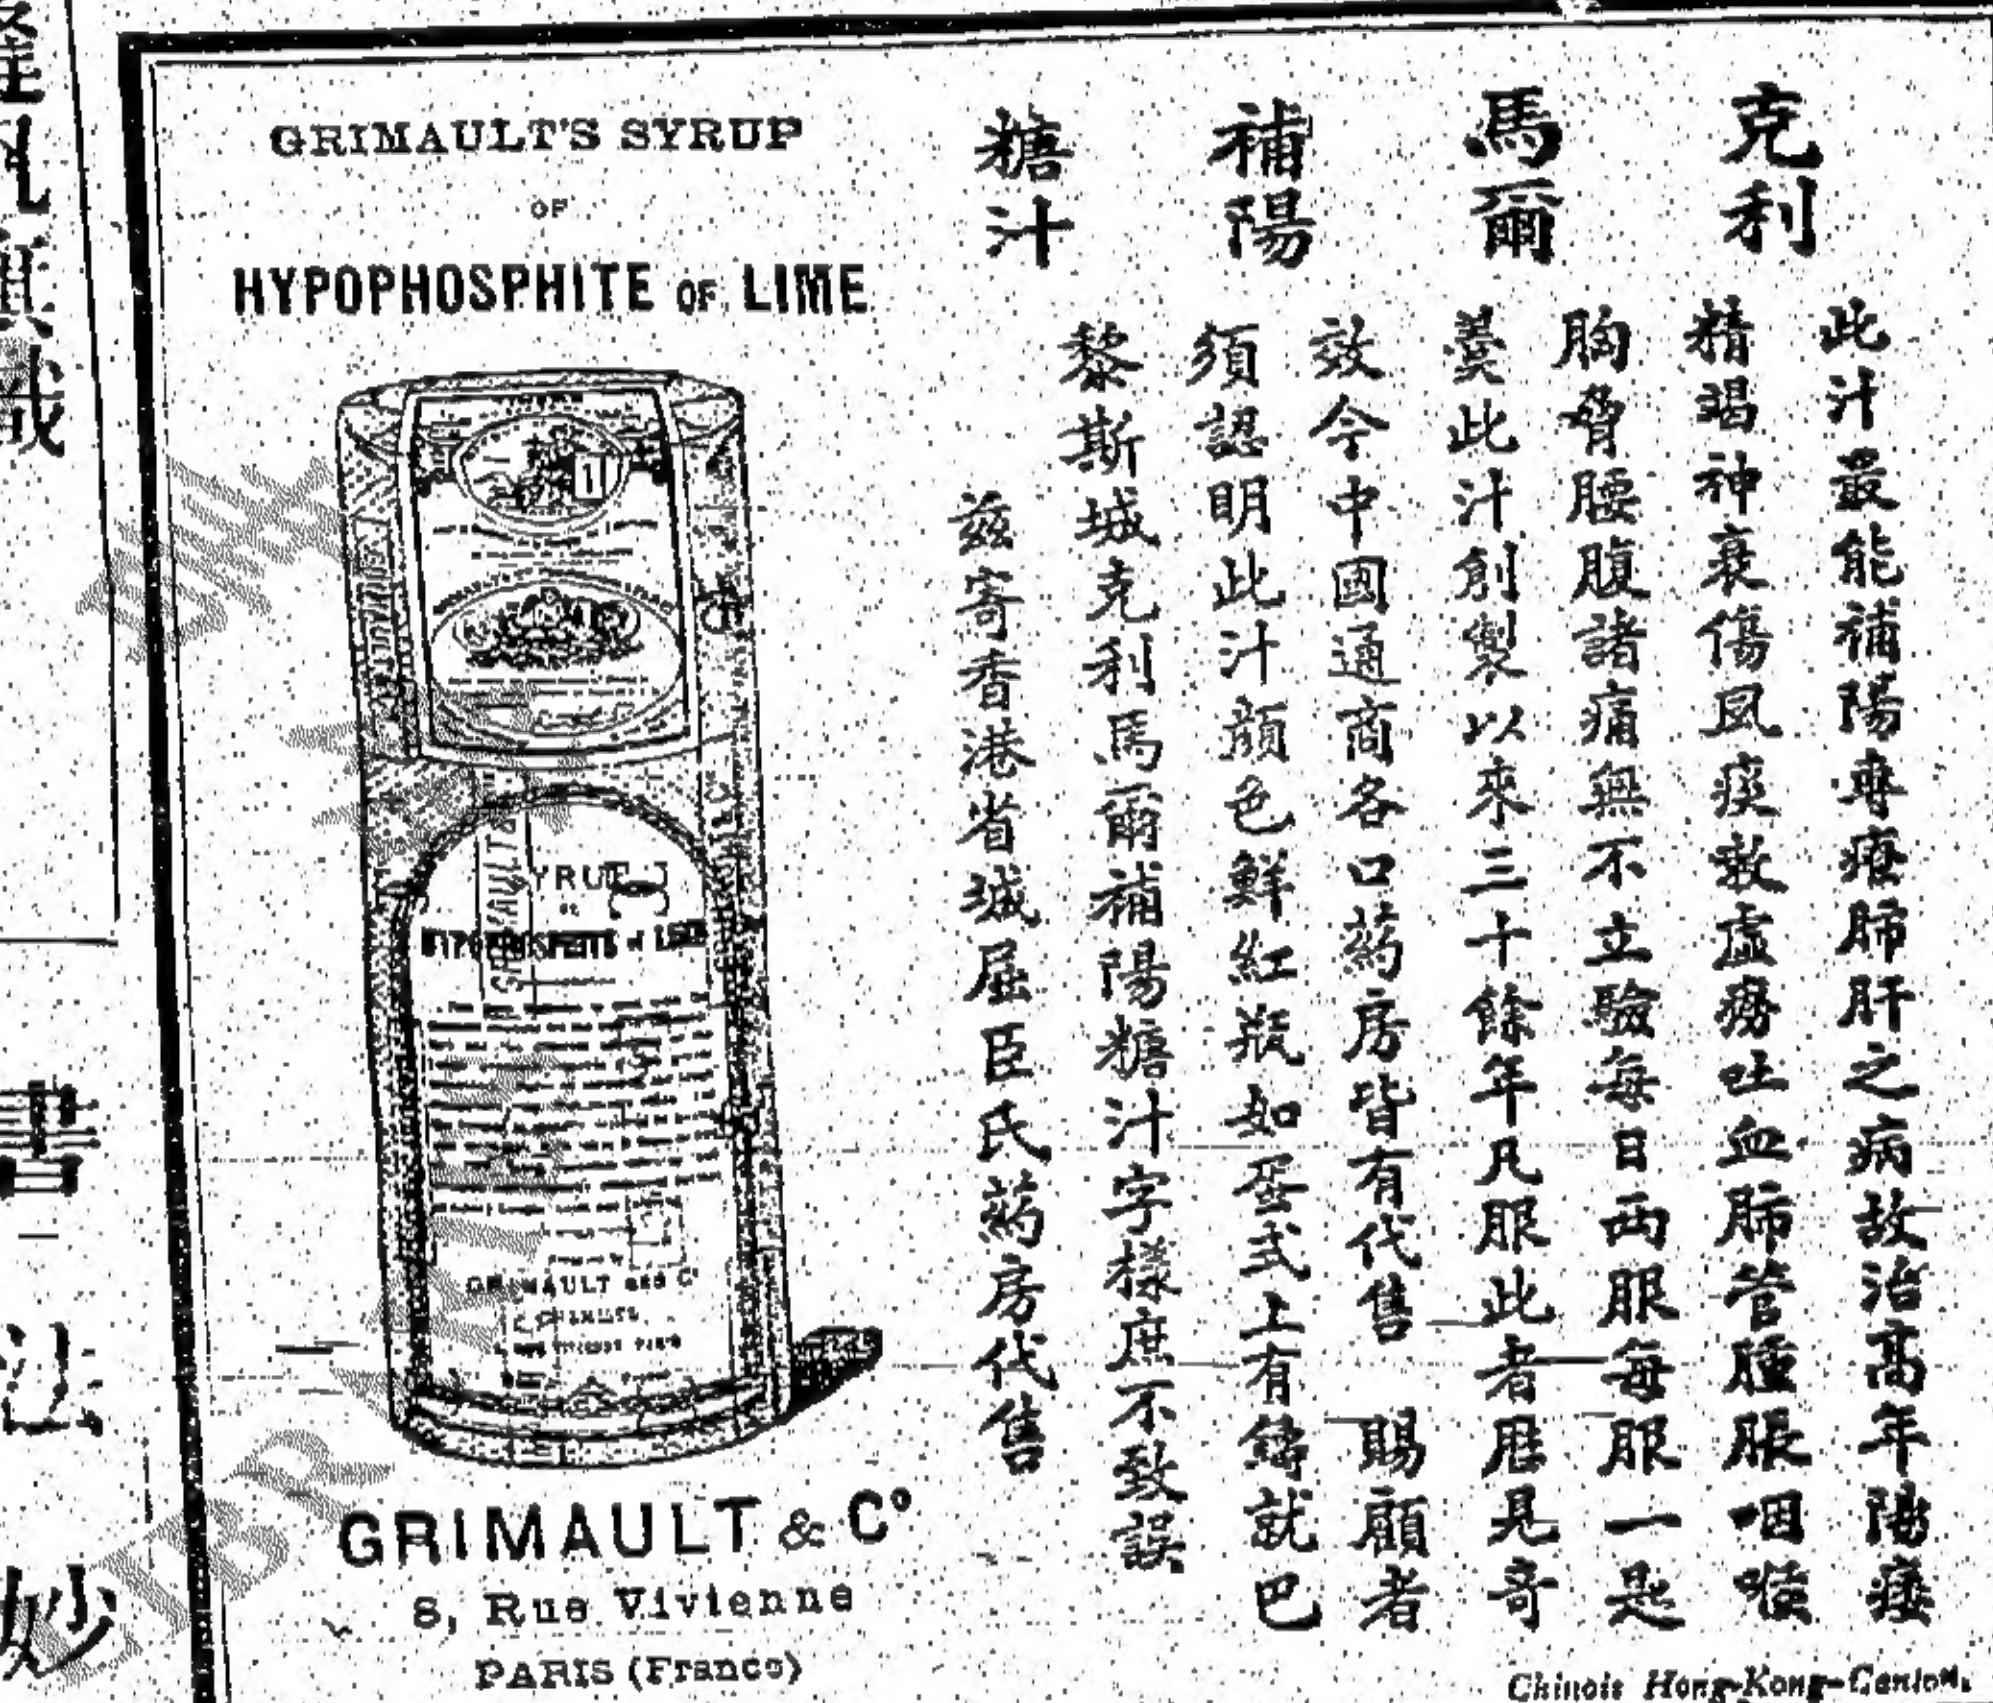 克利
馬爾
補陽
糖汁
此汁最能補陽專療肺肝之病故治高年陽痿
精竭神衰傷風痰欬虛癆吐血肺管腫脹咽喉
胸脅腰腹諸痛無不立驗每日両服每服一匙
羹此汁創製以來三十餘年凡服此者歷見奇
效今中國通商各口葯房皆有代售 賜顧者
須認明此汁顏色鮮紅瓶如蛋式上有鑄就巴
黎斯城克利馬爾補陽糖汁字樣庶不致誤
茲寄香港省城屈臣氏葯房代售
GRIMAULT'S SYRUP
OF
HYPOPHOSPHITE OF LIME
GRIMAULT & Cº
8, Rue Vivienne
PARIS (France)
Chinois Hong-Kong-Canton.
書
法
妙